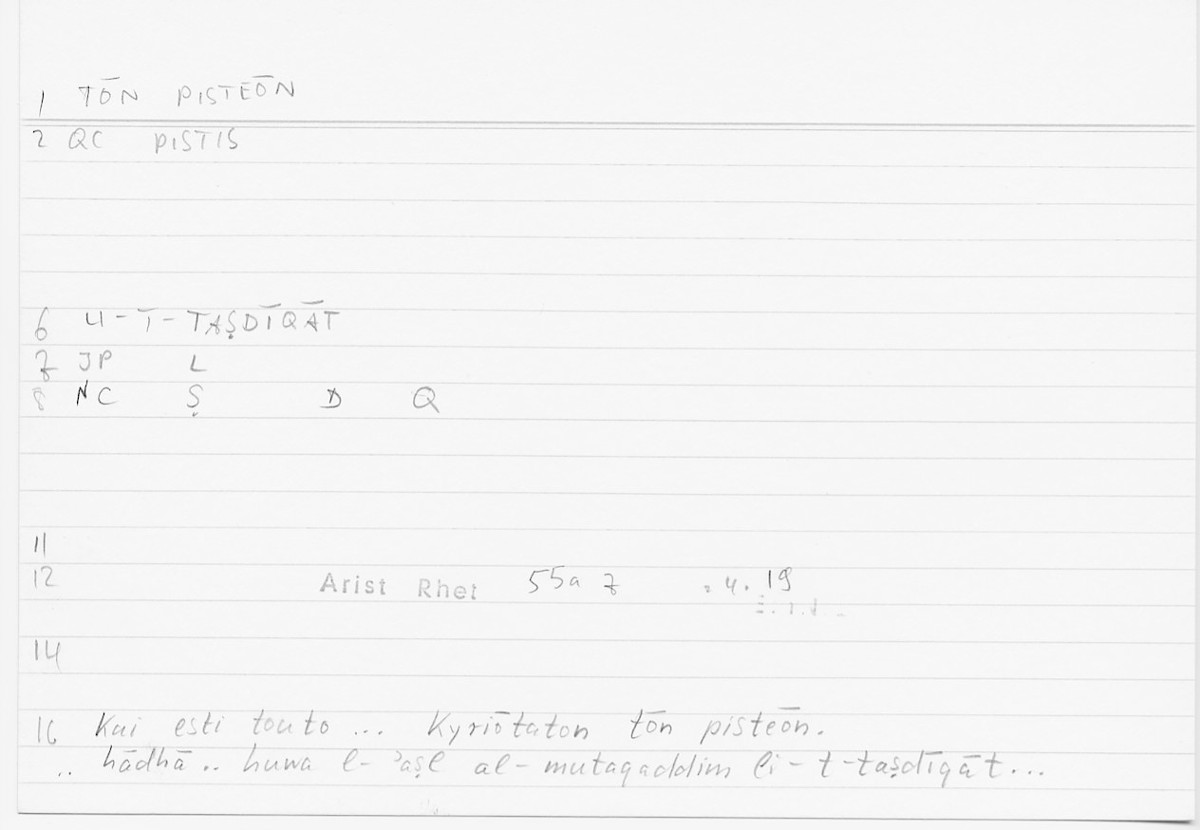 1 TŌN PISTEŌN
2 QC PISTIS
6 LI-T-TAṢDĪQĀT
7 JP L
8 NC Ṣ D Q
11
12 Arist Rhet 55a 7 4.19
14
16 Kai esti touto ... Kyriōtaton tōn pisteōn.
.. hādhā .. huwa l-ʾaṣl al-mutaqaddim li-t-taṣdīqāt...